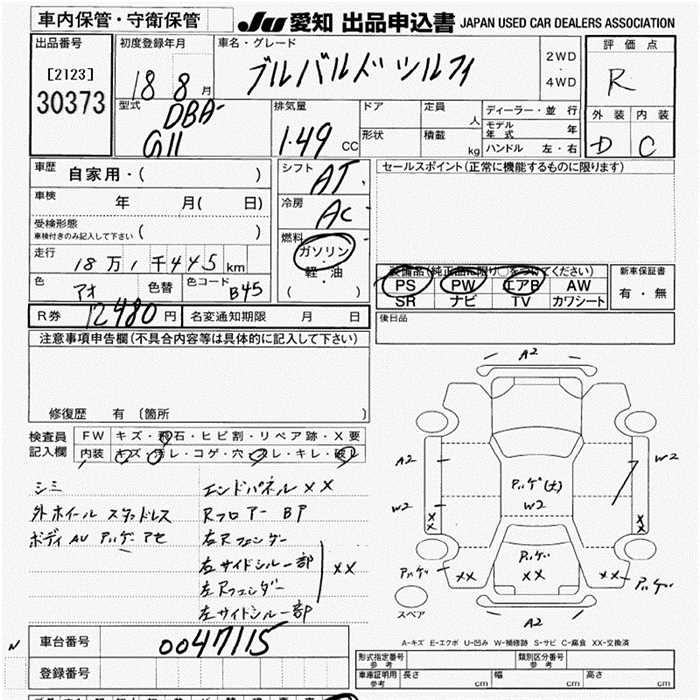 車内保管・守衛保管
JU 愛知 出品申込書 JAPAN USED CAR DEALERS ASSOCIATION
出品番号
[2123]
30373
初度登録年月
18 8 月
車名・グレード
ブルバルド シルフィ
2WD
・
4WD
評価点
R
外装 内装
D C
型式
DBA-
G11
排気量
1.49 CC
ドア
定員
人
形状
積載
kg
ディーラー・並行
モデル年式 年
ハンドル 左・右
車歴 自家用・( )
車検 年 月( 日)
受検形態
車検付きのみ記入して下さい ( )
走行
18万1千445km
色 アオ 色替 色コード B45
シフト AT
冷房 AC
燃料
ガソリン
軽・油
( )
セールスポイント(正常に機能するものに限ります)
装備品(純正品に限り○をつけてください)
PS PW エアB AW
SR ナビ TV カワシート
新車保証書
有・無
R券 12480円 名変通知期限 月 日
後日品
注意事項申告欄(不具合内容等は具体的に記入して下さい)
修復歴 有 〔箇所
検査員
記入欄
FW キズ・飛石・ヒビ割・リペア跡・X要
内装 キズ・汚レ・コゲ・穴・スレ・キレ・破レ
シミ
外ホイール スタッドレス
エンドパネル XX
Rフロアー BP
右Rフェンダー
左サイドシルー部
左Rフェンダー
左サイドシルー部
XX
A2
A2
W2
W2
W2
XX
XX
XX
XX
XX
A2
スペア
A-キズ E-エクボ U-凹み W-補修跡 S-サビ C-腐食 XX-交換済
車台番号 0047115
登録番号
型式指定番号
参考
類別区分番号
参考
車庫証明用
参考
長さ cm 幅 cm 高さ cm